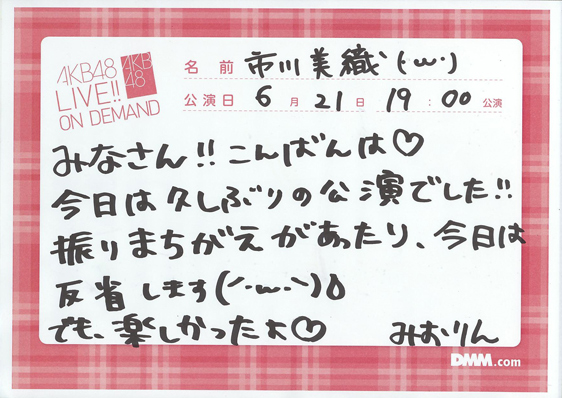 AKB48
LIVE!!
ON DEMAND
AKB
48
名前 市川美織(·ω·)
公演日 6月21日 19:00公演
みなさん!!こんばんは♡
今日は久しぶりの公演でした!!
振りまちがえがあったり、今日は
反省します(´·ω·`)
でも、楽しかったよ♡ みおりん
DMM.com